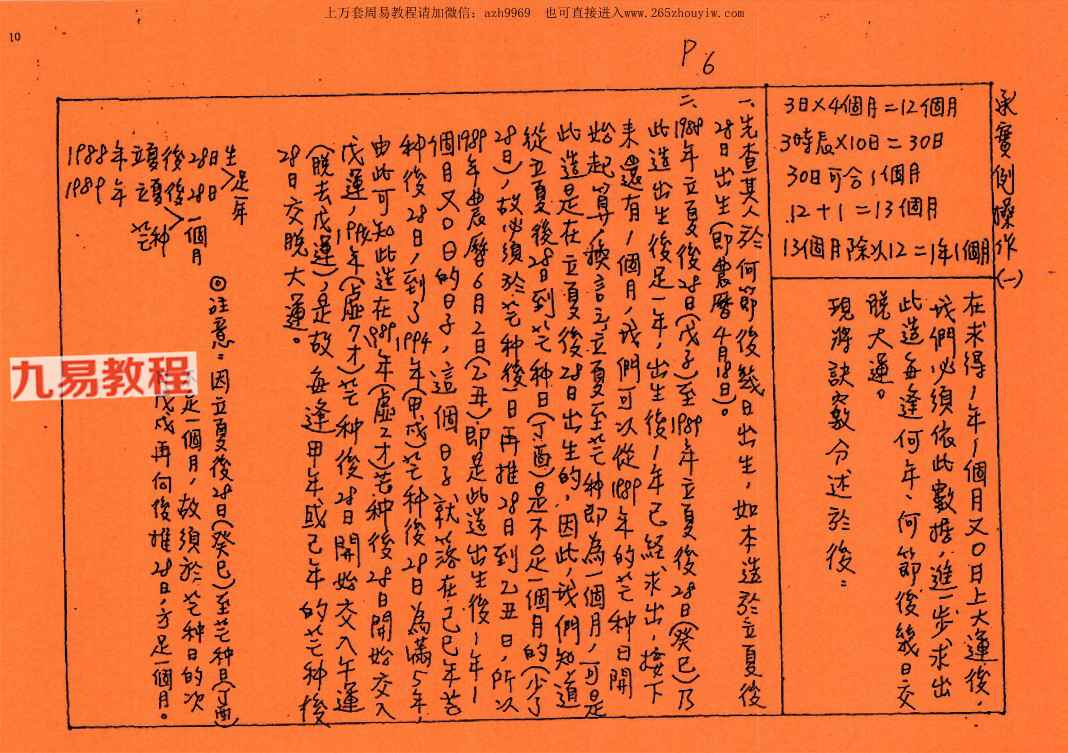 上万套周易教程请加微信：azh9969 也可直接进入www.265zhouyiw.com
10
P6
承實例操作(一)
3日×4個月=12個月
3時辰×10日=30日
30日可合1個月
12+1=13個月
13個月除以12=1年1個月
在求得1年1個月又0日上大運後，
我們必須依此數據，進一步求出
此造每逢何年、何節後幾日交
脫大運。
現將訣竅分述於後：
一、先查其人於何節後幾日出生，如本造於立夏後
28日出生(即農曆4月18日)。
二、1988年立夏後28日(戊子)至1989年立夏後28日(癸巳)乃
此造出生後足一年，出生後1年已經求出，接下
來還有1個月，我們可以從1989年的芒种日開
始起算，換言之，立夏至芒种即為一個月，可是
此造是在立夏後28日出生的，因此，我們知道
從立夏後28日到芒种日(丁酉)是不足一個月的(少了
28日)，故必須於芒种後1日再推28日到乙丑日，所以
1989年農曆6月2日(乙丑)即是此造出生後1年1
個月又0日的日子，這個日子就落在己巳年芒
种後28日，到了1994年(甲戌)芒种後28日為滿5年，
由此可知此造在1989年(虛2才)芒种後28日開始交入
戊運，1994年(虛7才)芒种後28日開始交入午運
(脫去戊運)，是故每逢甲年或己年的芒种後
28日交脫大運。
1988年立夏後28日生
1989年立夏後28日
足一年
芒种
一個月
◎注意：因立夏後28日(癸巳)至芒种日(丁酉)
足一個月，故須於芒种日的次
戊戌再向後推28日，方足一個月。
九易教程